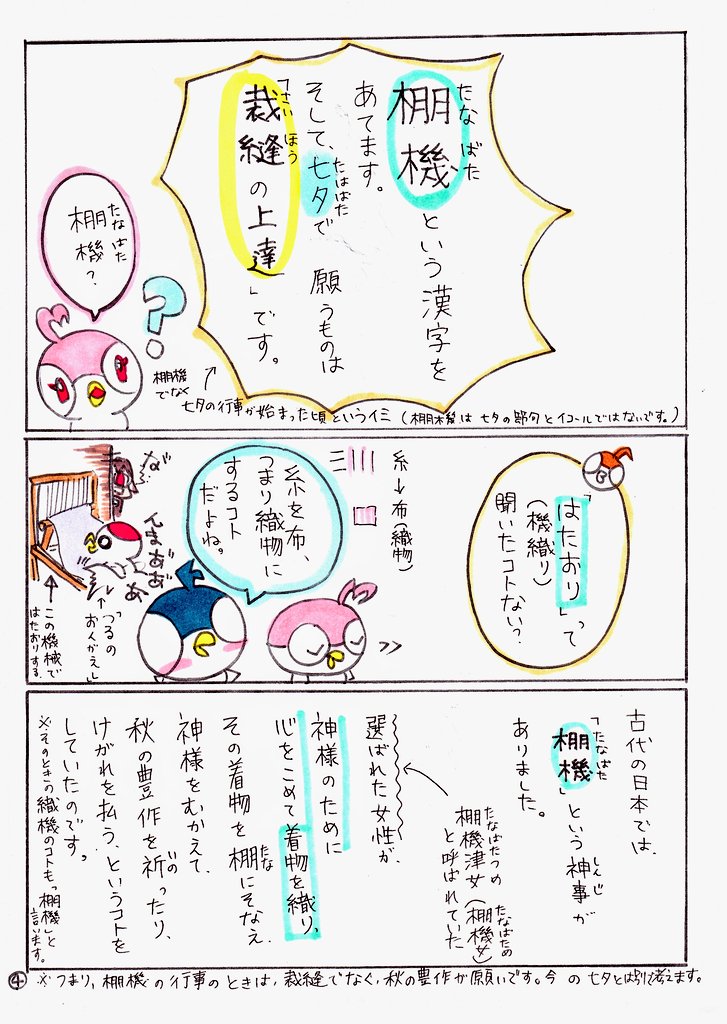 棚機という漢字を
たなばた
あてます。
そして、七夕で願うものは
たはばた
裁縫の上達」です。
さいほう
棚機?
たなはた
?
棚機
でなく
七夕の行事が始まった頃というイミ(棚機は七夕の節句とイコールではないです。)
「はたおり」って
(機織り)
聞いたコトない?
糸→布(織物)
糸を布、
つまり織物に
するコト
だよね。
なっ
んまぁあぁ
「つるの
おんがえし」
この機械で
はたおりする。
古代の日本では、
「棚機」という神事が
たなばた
しんじ
ありました。
棚機津女(棚機女)
たなばたつめ
たなばため
と呼ばれていた
選ばれた女性が、
神様のために
心をこめて着物を織り、
その着物を棚にそなえ、
たな
神様をむかえて、
秋の豊作を祈ったり、
いの
けがれを払う、というコトを
していたのです。
※そのときの織機のコトも「棚機」と
言います。
④※つまり、棚機の行事のときは、裁縫でなく、秋の豊作が願いです。今の七夕とは別で考えます。